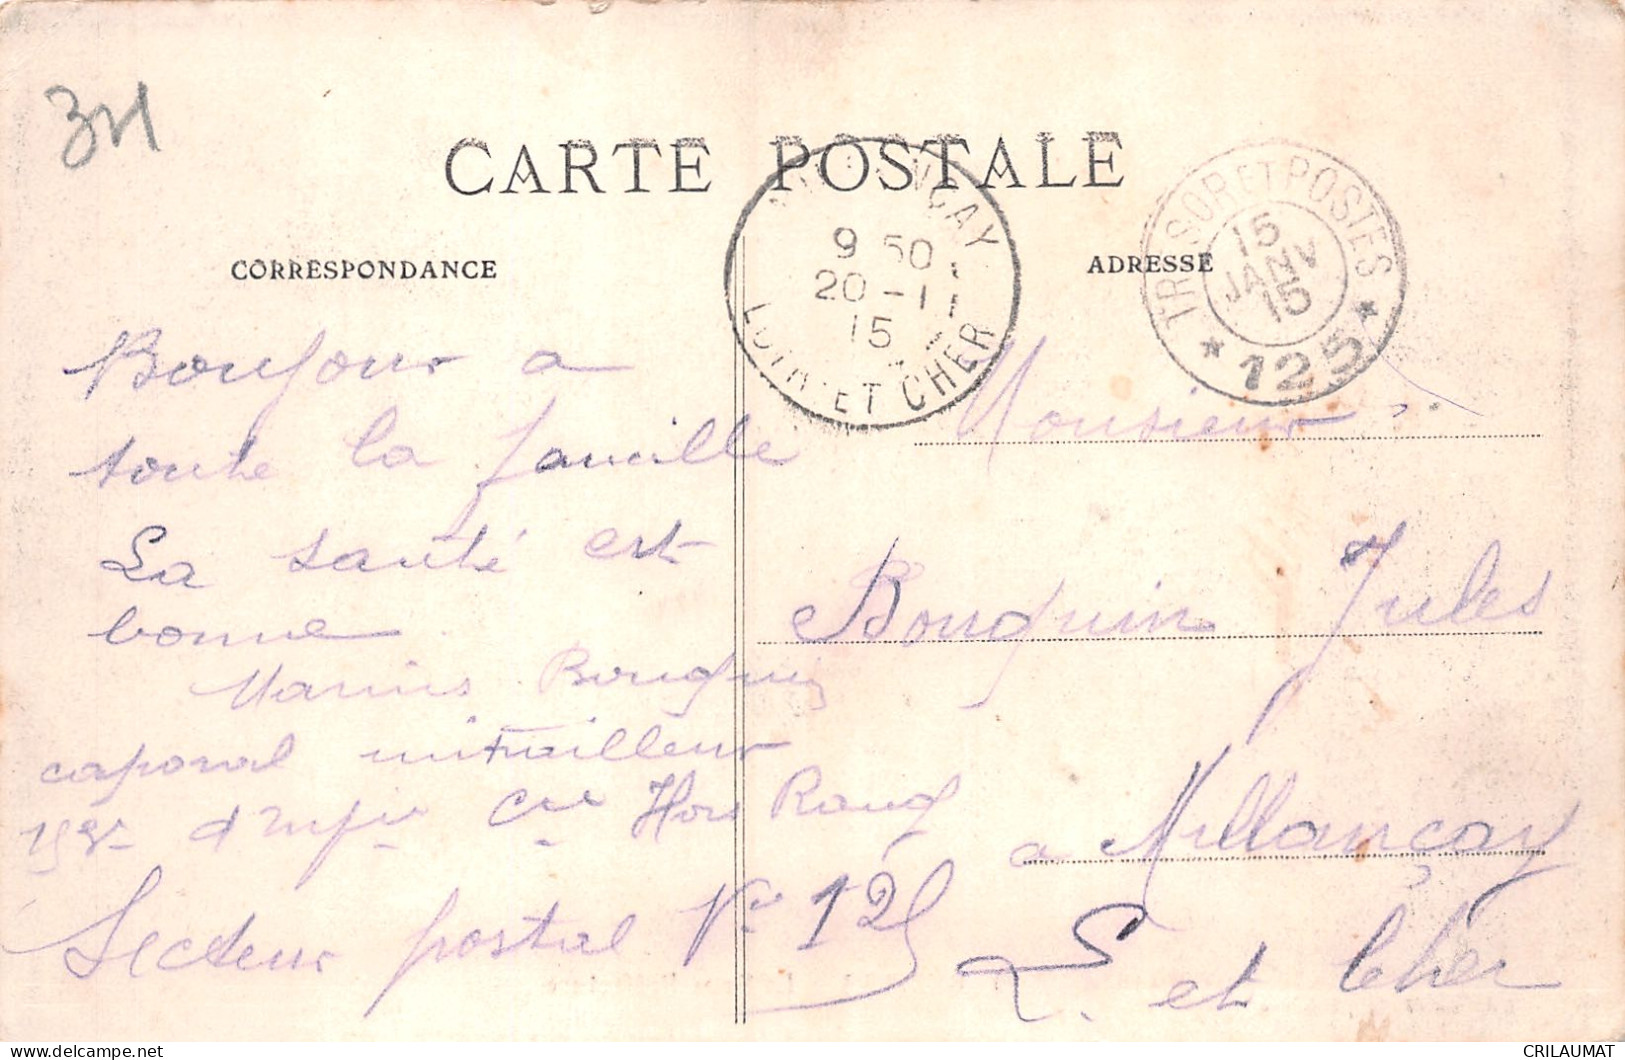 311
CARTE POSTALE
CORRESPONDANCE
ADRESSE
MILLANÇAY
9 50
20 - 1
15
LOIR-ET-CHER
TRESOR ET POSTES
15
JANV
15
* 125 *
Bonjour a
toute la famille
La santé est
bonne
Marius Bouquin
caporal mitrailleur
d'infie Cie Hors Rang
Secteur postal No 125
Monsieur
Bouquin Jules
a Millançay
L. et Cher
CRILAUMAT